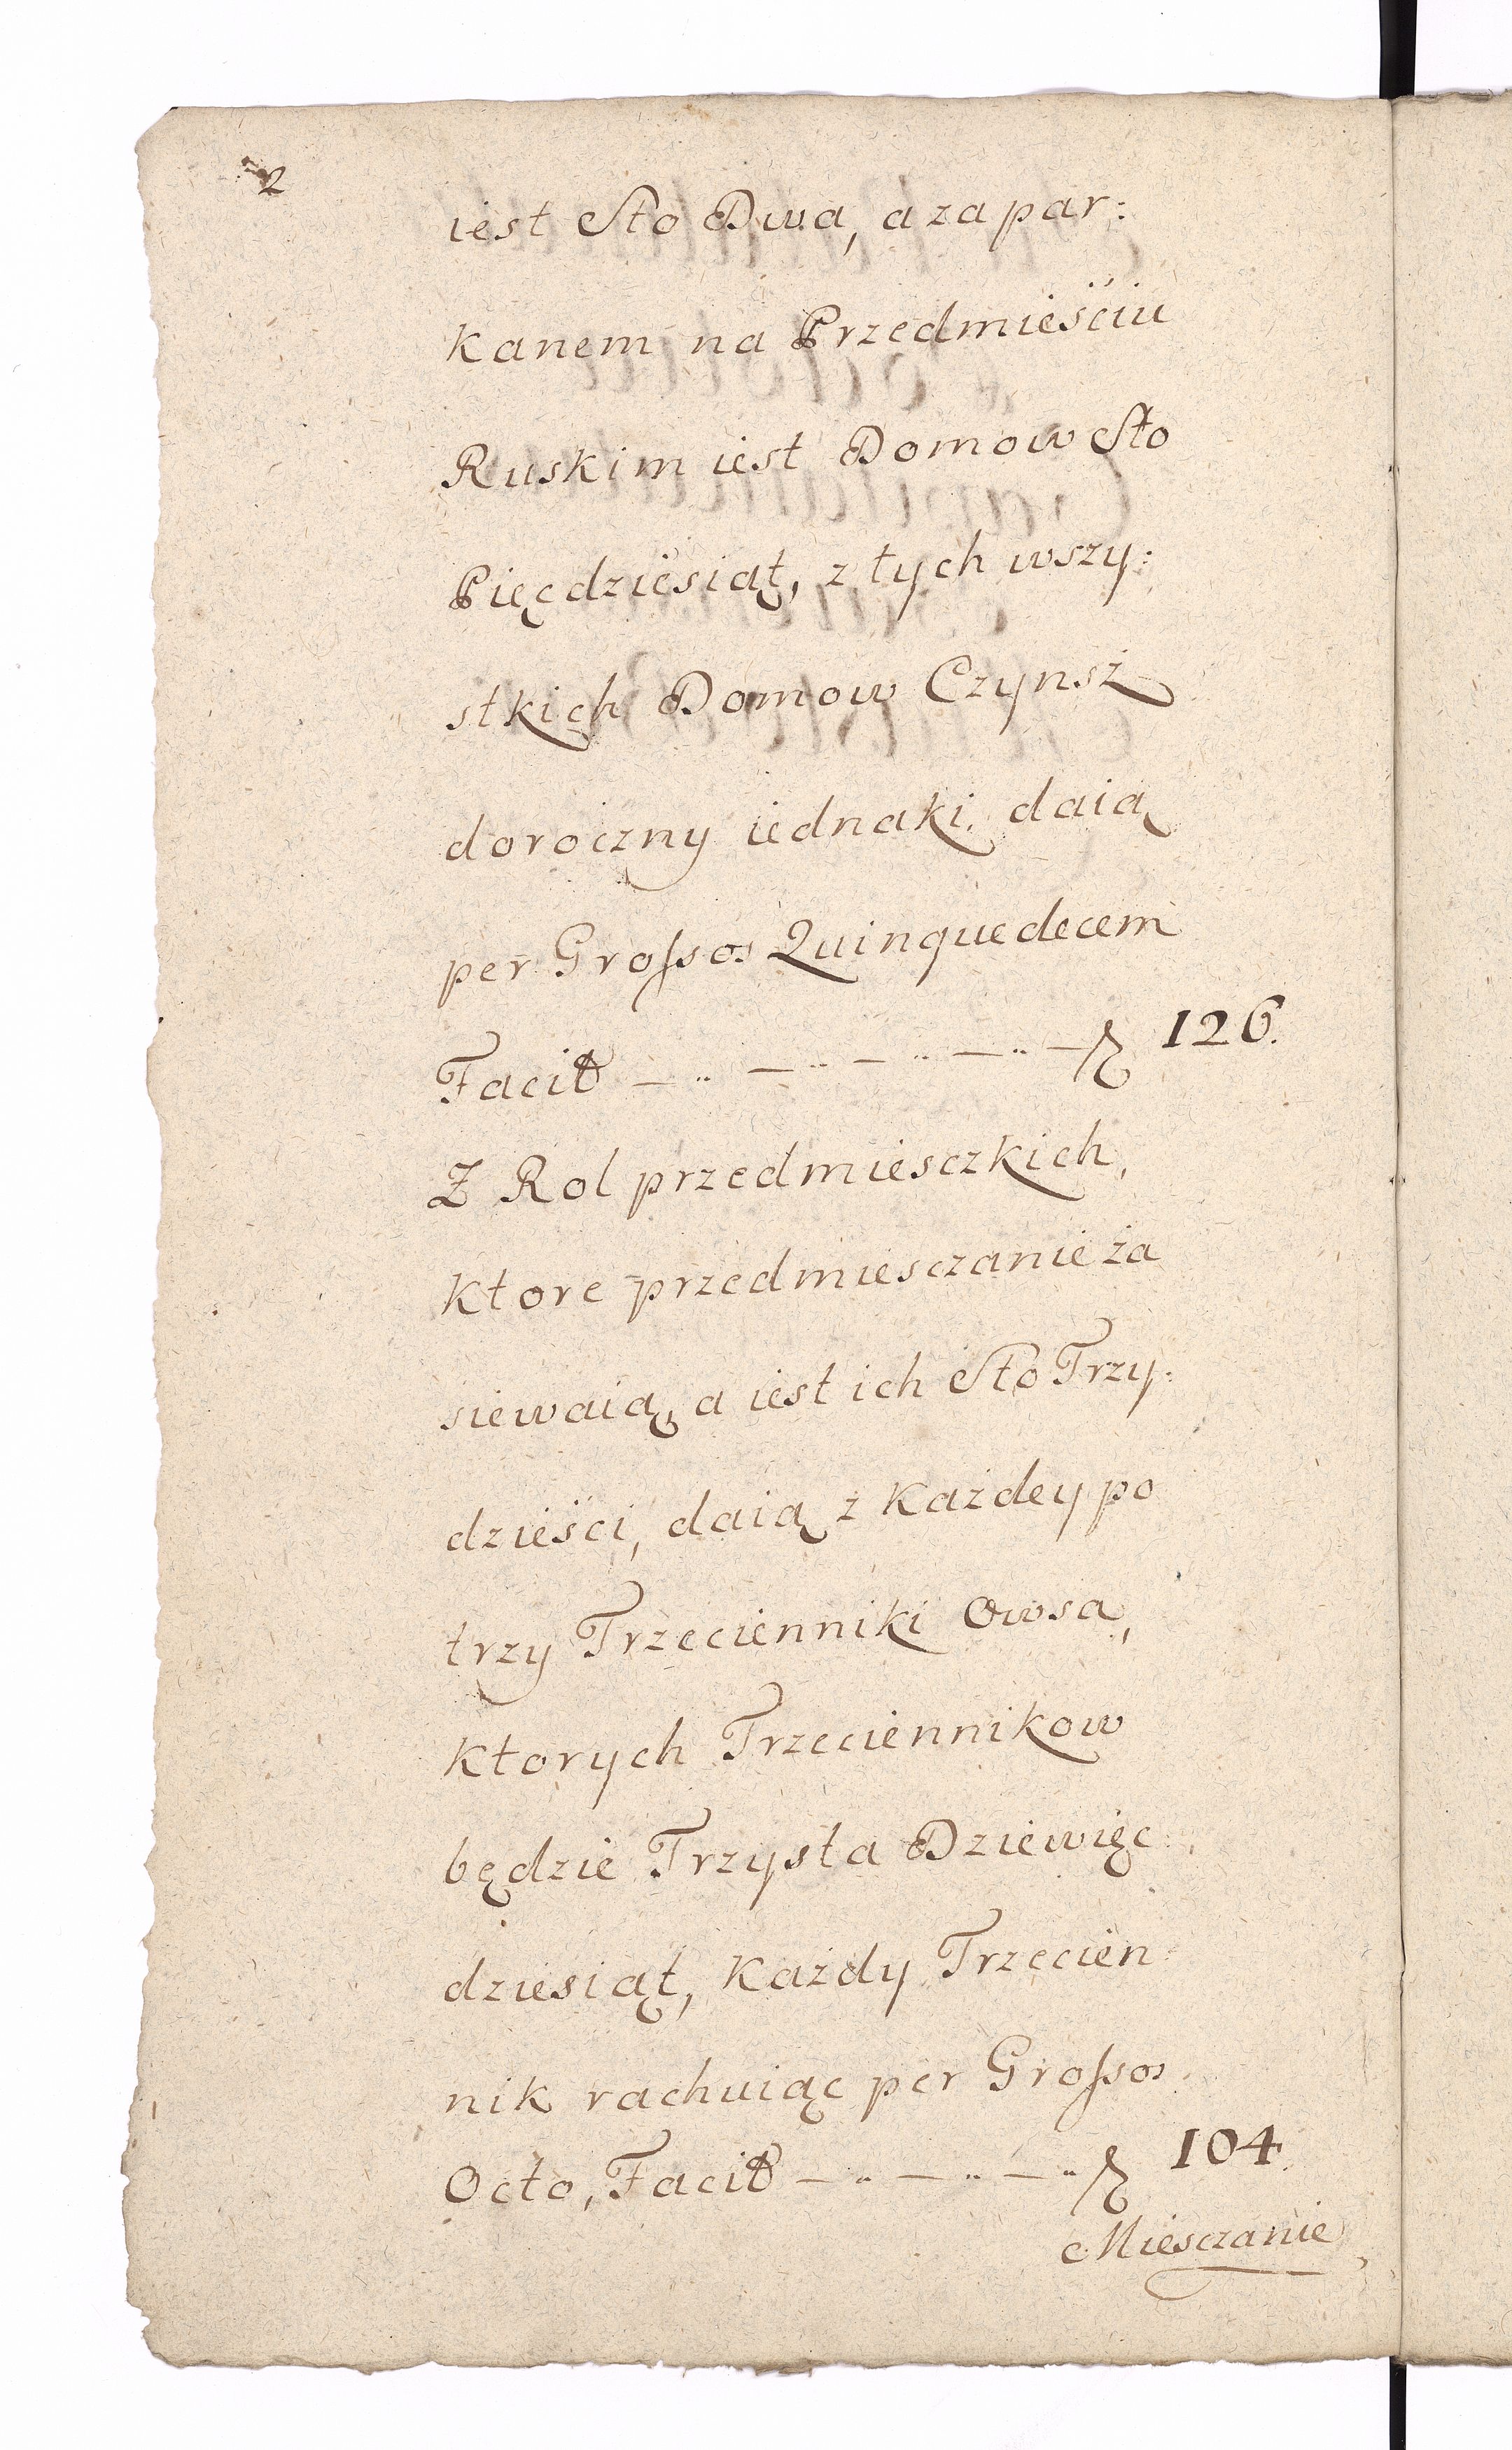 2
iest Sto Dwa, a za par:
kanem na Przedmieściu
Ruskim iest Domow Sto
Pięcdziesiąt, z tych wszy:
stkich Domow Czynsz
doroczny iednaki daią
per Groſsos Quinquedecem
Facit — .. — .. — .. — .. — 126.
Z Rol przedmiesczkich,
ktore przedmiesczanie za
siewaią, a iest ich Sto Trzy:
dzieści, daią z każdey po
trzy Trzecienniki Owsa,
ktorych Trzeciennikow
będzie Trzysta Dziewięc
dziesiąt, każdy Trzecien
nik rachuiąc per Groſsos
Octo, Facit — .. — .. — .. 104.
Miesczanie